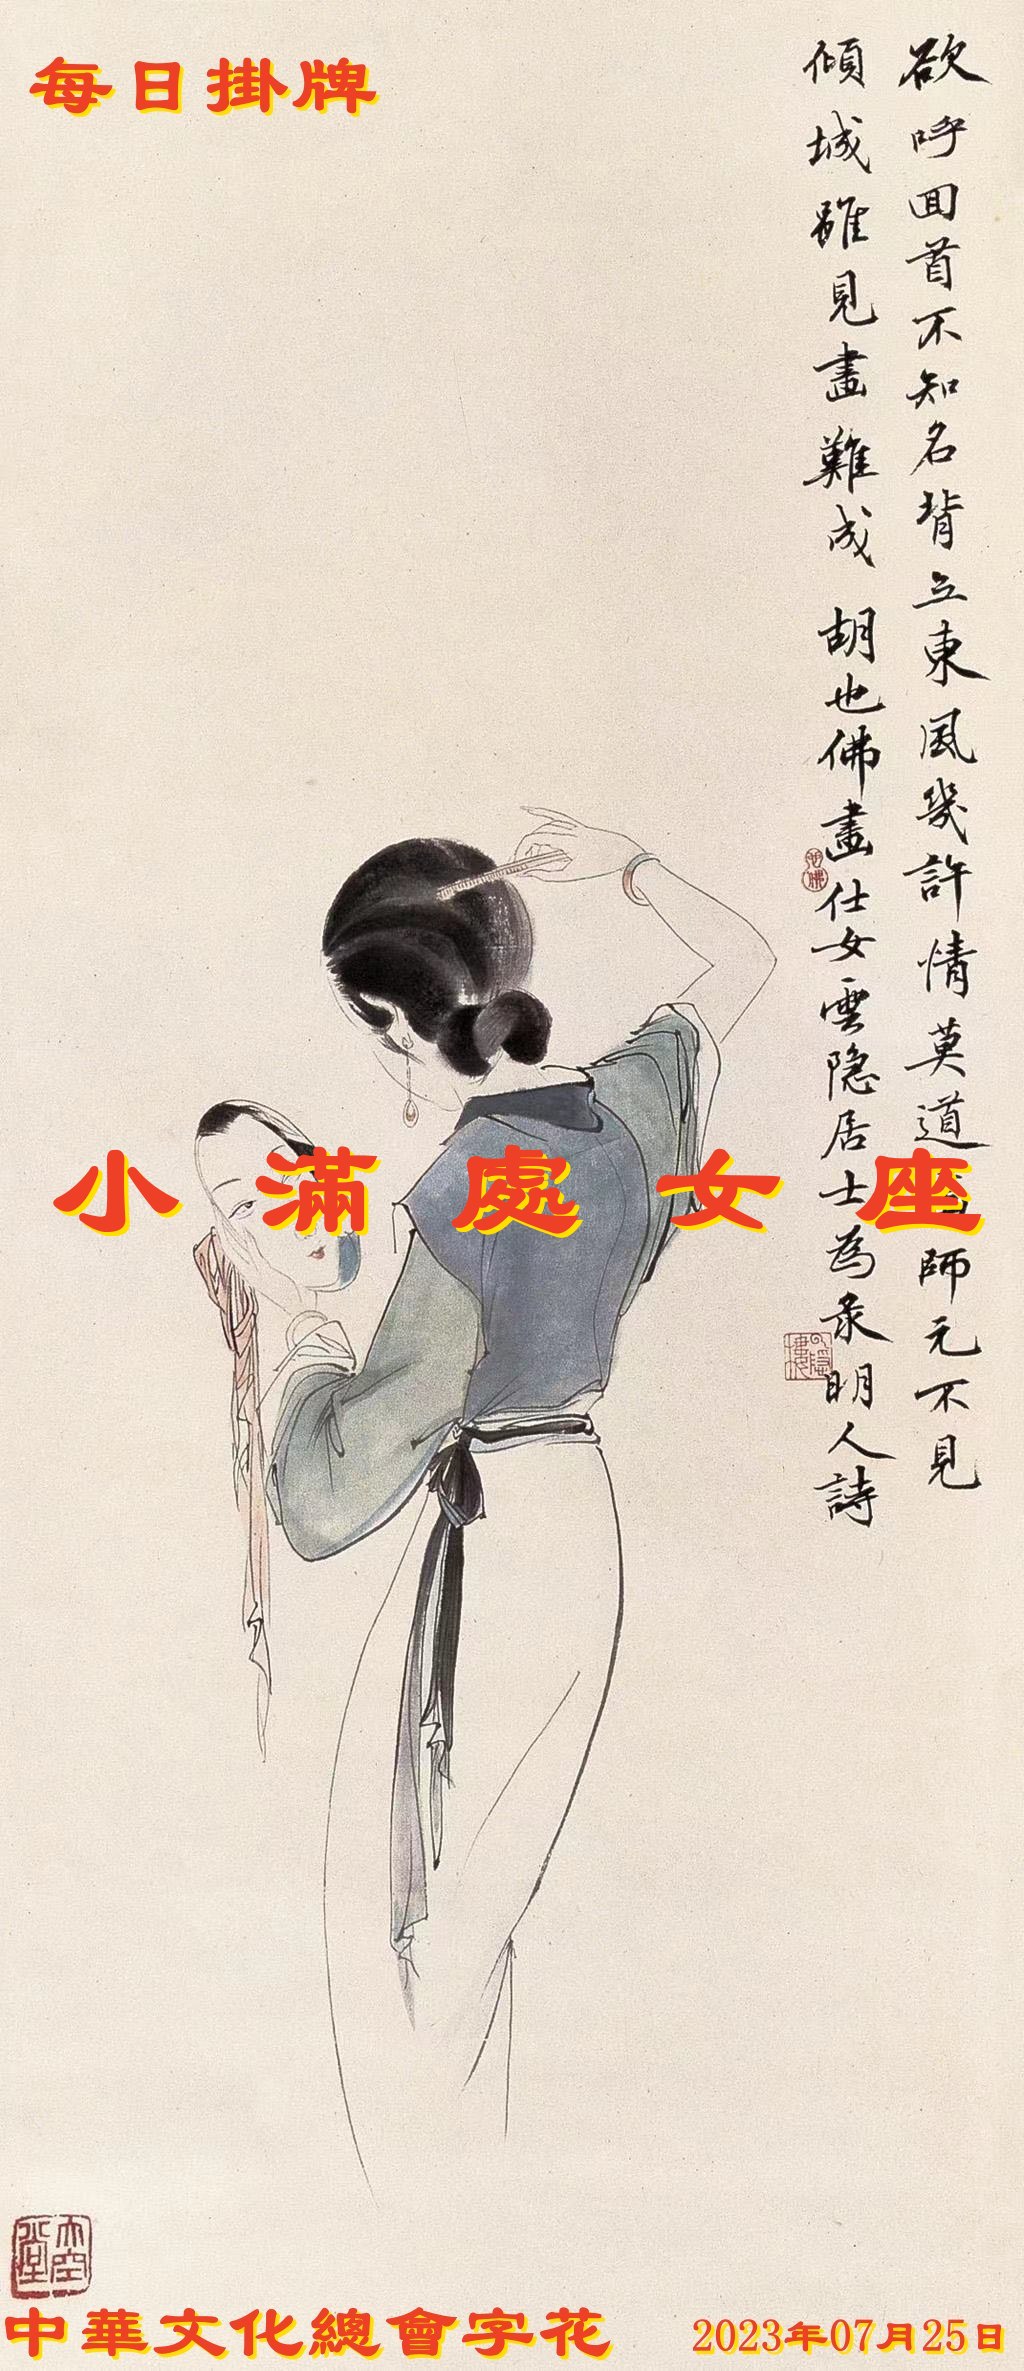 每日掛牌
欲呼回首不知名背立東風幾許情莫道師元不見
傾城雖見畫難成 胡也佛畫仕女雲隐居士為录明人詩
小滿處女座
中華文化總會字花
2023年07月25日